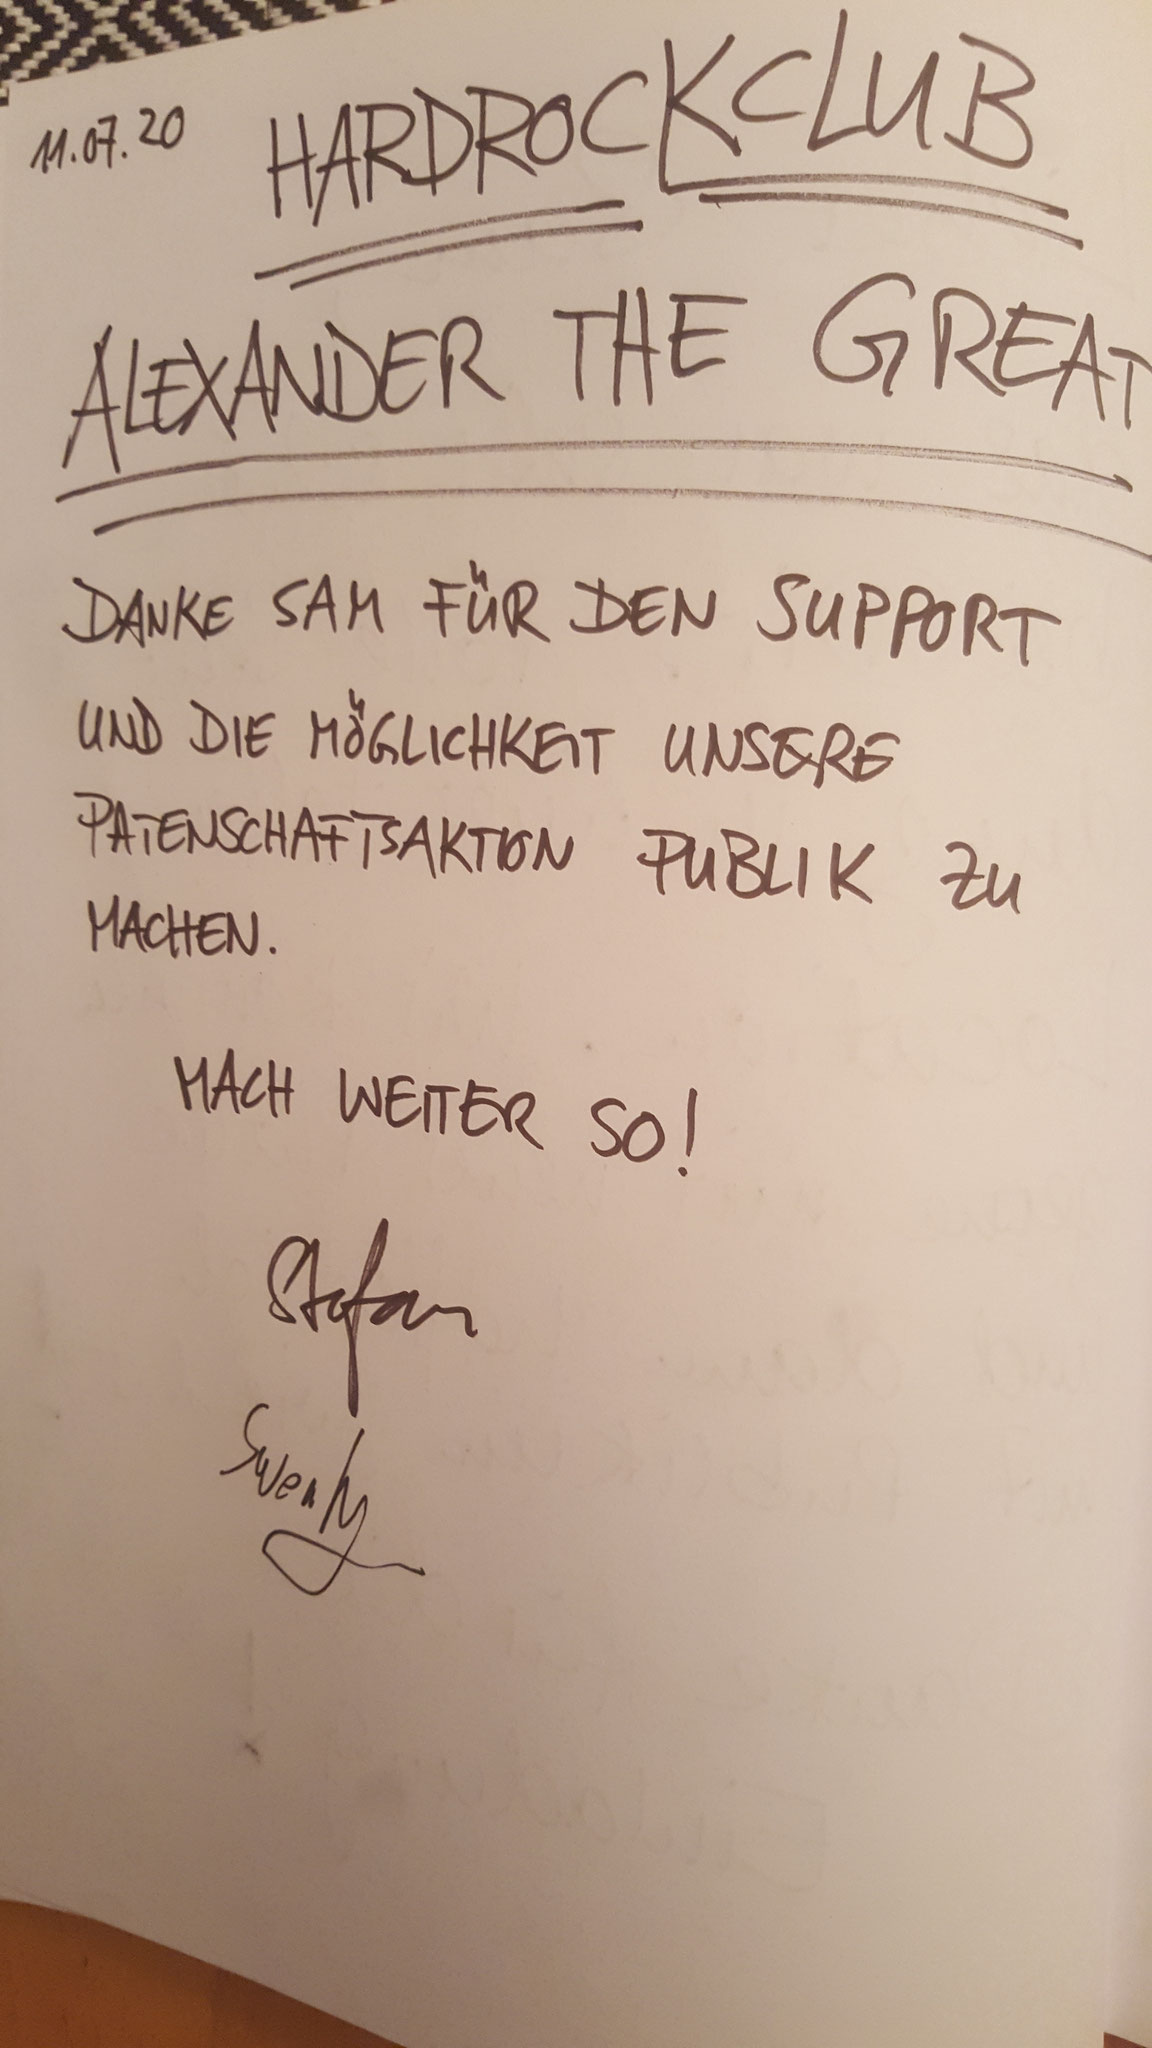 11.07.20 HARDROCKCLUB
ALEXANDER THE GREAT
DANKE SAM FÜR DEN SUPPORT
UND DIE MÖGLICHKEIT UNSERE
PATENSCHAFTSAKTION PUBLIK ZU
MACHEN.
MACH WEITER SO!
Stefan